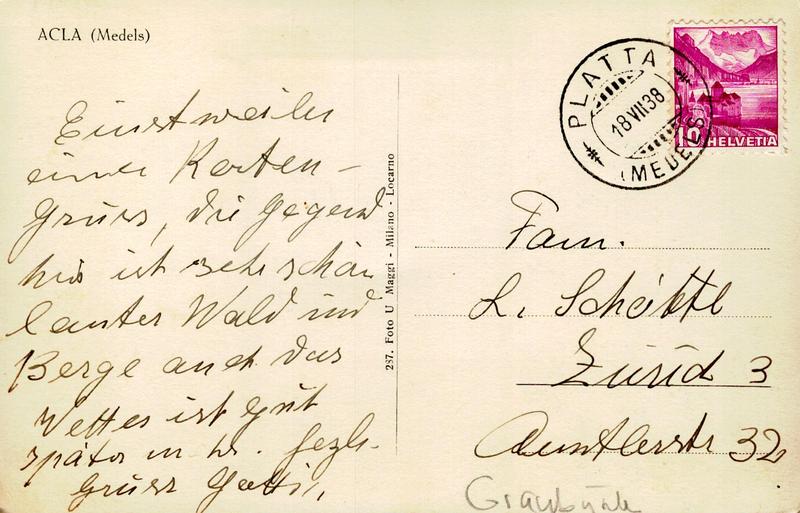 ACLA (Medels)
PLATTA
18 VII 38
(MEDELS)
10 HELVETIA
Einstweilen
einen Karten-
Gruss, die Gegend
hier ist sehr schön
lauter Wald und
Berge auch das
Wetter ist gut
später m hr. herzl.
Gruss
287. Foto U Maggi - Milano - Locarno
Fam.
L. Schöttl
Zürich 3
32
Graubünde